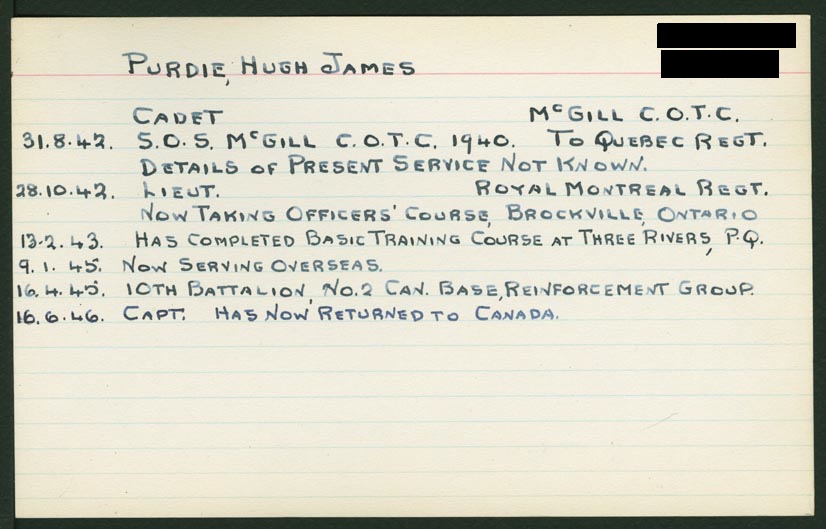 PURDIE, HUGH JAMES
CADET McGILL C.O.T.C.
31.8.42. S.O.S. McGILL C.O.T.C. 1940. TO QUEBEC REGT.
DETAILS OF PRESENT SERVICE NOT KNOWN.
28.10.42. LIEUT. ROYAL MONTREAL REGT.
NOW TAKING OFFICERS' COURSE, BROCKVILLE, ONTARIO
13.2.43. HAS COMPLETED BASIC TRAINING COURSE AT THREE RIVERS, P.Q.
9.1.45. NOW SERVING OVERSEAS.
16.4.45. 10TH BATTALION, NO.2 CAN. BASE, REINFORCEMENT GROUP.
16.6.46. CAPT. HAS NOW RETURNED TO CANADA.